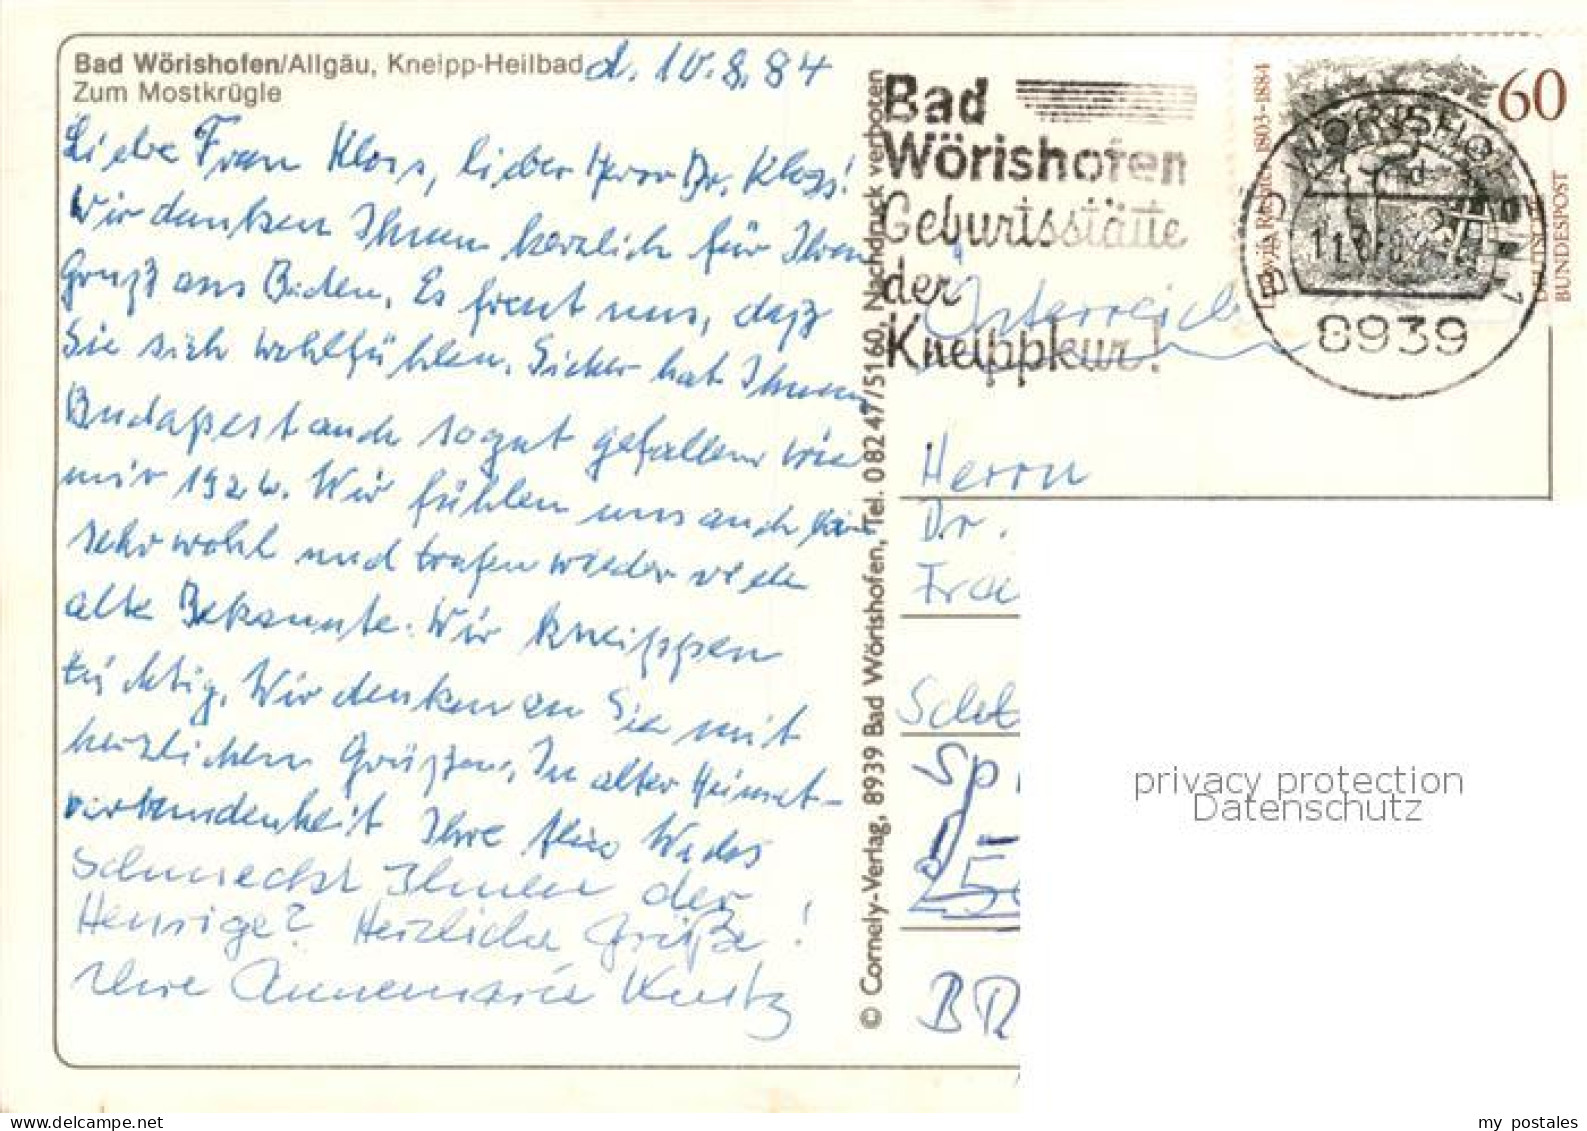 Bad Wörishofen/Allgäu, Kneipp-Heilbad
Zum Mostkrügle
d. 10.8.84
Liebe Frau Kloss, lieber Herr Dr. Kloss!
Wir danken Ihnen herzlich für Ihren
Gruß aus Baden. Es freut uns, daß
Sie sich wohlfühlen. Sicher hat Ihnen
Budapest auch so gut gefallen wie
mir 1924. Wir fühlen uns auch hier
sehr wohl und trafen wieder viele
alte Bekannte. Wir kneippen
tüchtig. Wir denken an Sie mit
herzlichen Grüßen. In alter Heimat-
verbundenheit Ihre
Schmeckt Ihnen der
Heurige? Herzliche Grüße!
Ihre Annemarie
© Cornely-Verlag, 8939 Bad Wörishofen, Tel. 08247/5160, Nachdruck verboten
Bad
Wörishofen
Geburtsstätte
der
Kneippkur!
60
1803-1884
DEUTSCHE
BUNDESPOST
BAD WÖRISHOFEN
8939
Österreich
Herrn
Dr.
Sp
privacy protection
Datenschutz
my postales